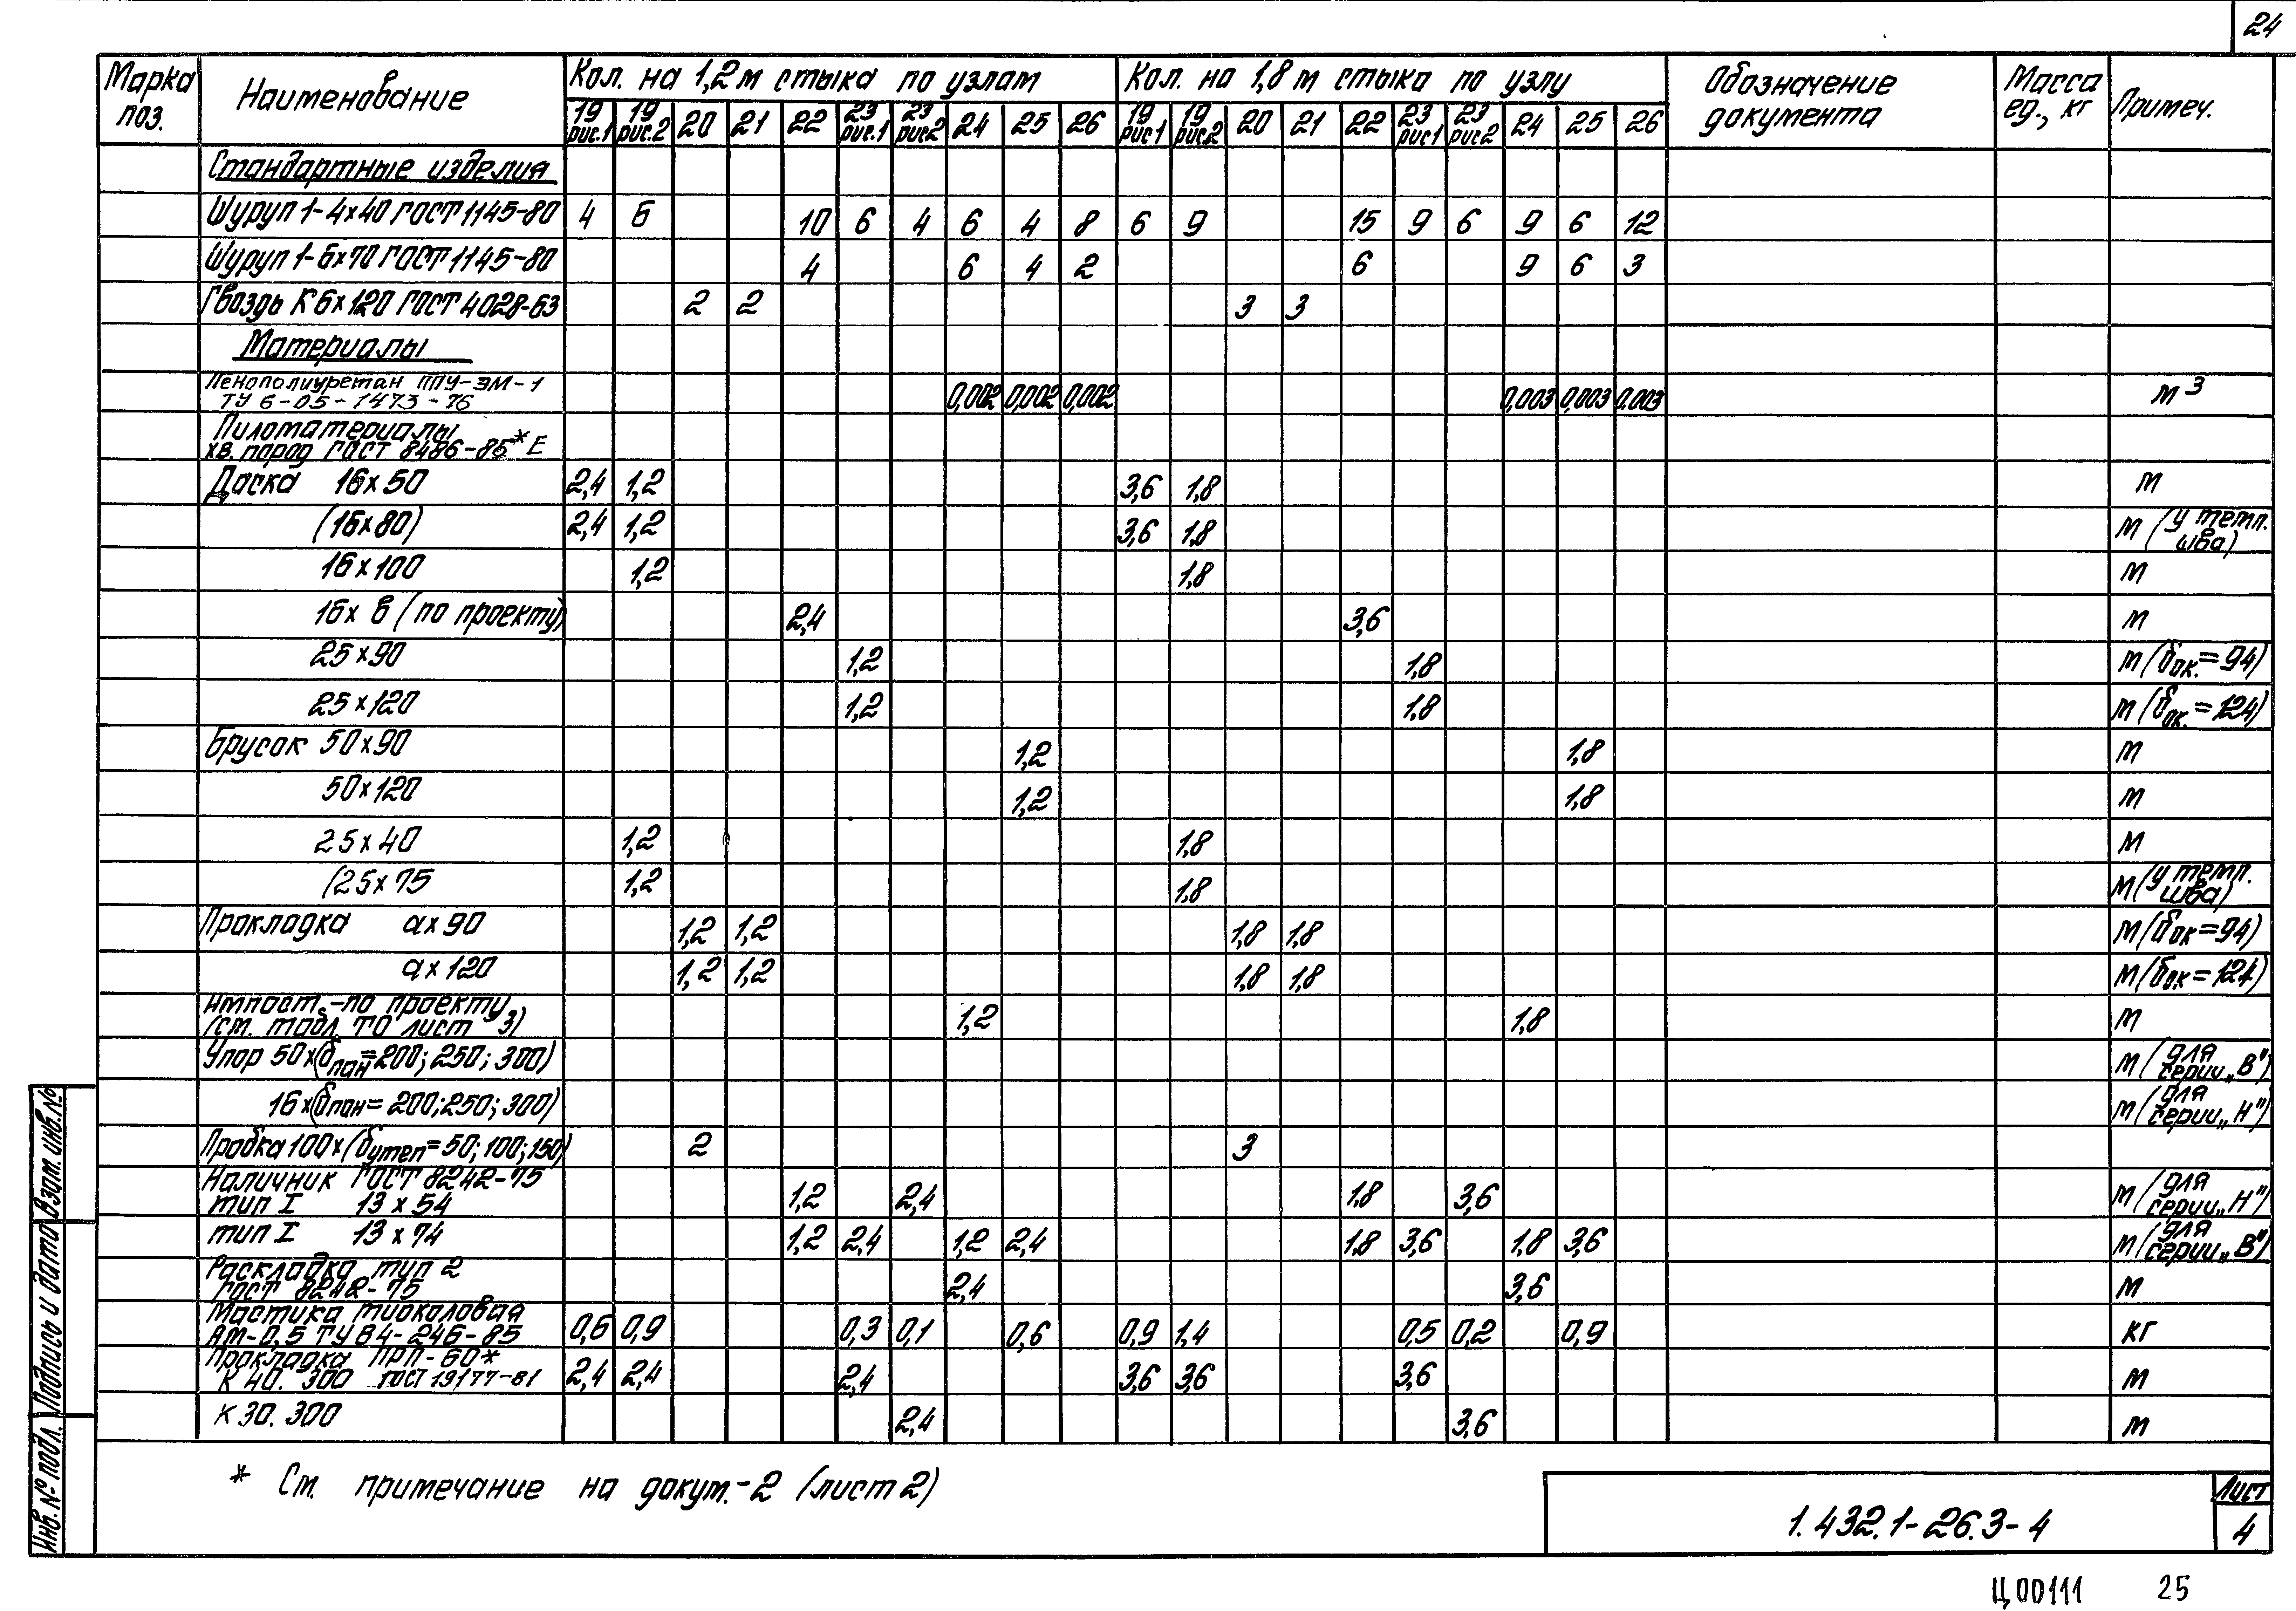 24
Марка поз. Наименование Кол. на 1,2 м стыка по узлам Кол. на 1,8 м стыка по узлу Обозначение документа Масса ед., кг Примеч.
19 рис.1 19 рис.2 20 21 22 23 рис.1 23 рис2 24 25 26 19 рис1 19 рис2 20 21 22 23 рис1 23 рис2 24 25 26
Стандартные изделия
Шуруп 1-4х40 ГОСТ 1145-80 4 6 10 6 4 6 4 8 6 9 15 9 6 9 6 12
Шуруп 1-6х70 ГОСТ 1145-80 4 6 4 2 6 9 6 3
Гвоздь К 6х120 ГОСТ 4028-63 2 2 3 3
Материалы
Пенополиуретан ППУ-ЭМ-1
ТУ 6-05-1473-76 0,002 0,002 0,002 0,003 0,003 0,003 м³
Пиломатериалы
хв. пород ГОСТ 8486-86*Е
Доска 16х50 2,4 1,2 3,6 1,8 м
(16х80) 2,4 1,2 3,6 1,8 м (у темп. шва)
16х100 1,2 1,8 м
16х в (по проекту) 2,4 3,6 м
25х90 1,2 1,8 м (бок.=94)
25х120 1,2 1,8 м (бок.=124)
Брусок 50х90 1,2 1,8 м
50х120 1,2 1,8 м
25х40 1,2 1,8 м
(25х75 1,2 1,8 м (у темп. шва)
Прокладка ах90 1,2 1,2 1,8 1,8 м (бок=94)
ах120 1,2 1,2 1,8 1,8 м (бок=124)
Импост-по проекту
(см. табл. ТО лист 3) 1,2 1,8 м
Упор 50х(бпан=200; 250; 300) м (для серии „В")
16х(бпан=200;250;300) м (для серии „Н")
Пробка 100х(бутеп=50; 100; 150) 2 3
Наличник ГОСТ 8242-75
тип I 13х54 1,2 2,4 1,8 3,6 м (для серии „Н")
тип I 13х74 1,2 2,4 1,2 2,4 1,8 3,6 1,8 3,6 м (для серии „В")
Раскладка тип 2
ГОСТ 8242-75 2,4 3,6 м
Мастика тиоколовая
АМ-0,5 ТУ 84-246-85 0,6 0,9 0,3 0,1 0,6 0,9 1,4 0,5 0,2 0,9 кг
Прокладка ПРП-60*
К 40. 300 ГОСТ 19177-81 2,4 2,4 2,4 3,6 3,6 3,6 м
К 30. 300 2,4 3,6 м
* См. примечание на докум.-2 (лист 2)
Инв. № подл. Подпись и дата Взам. инв. №
1.432.1-26.3-4
Лист
4
Ц00111 25